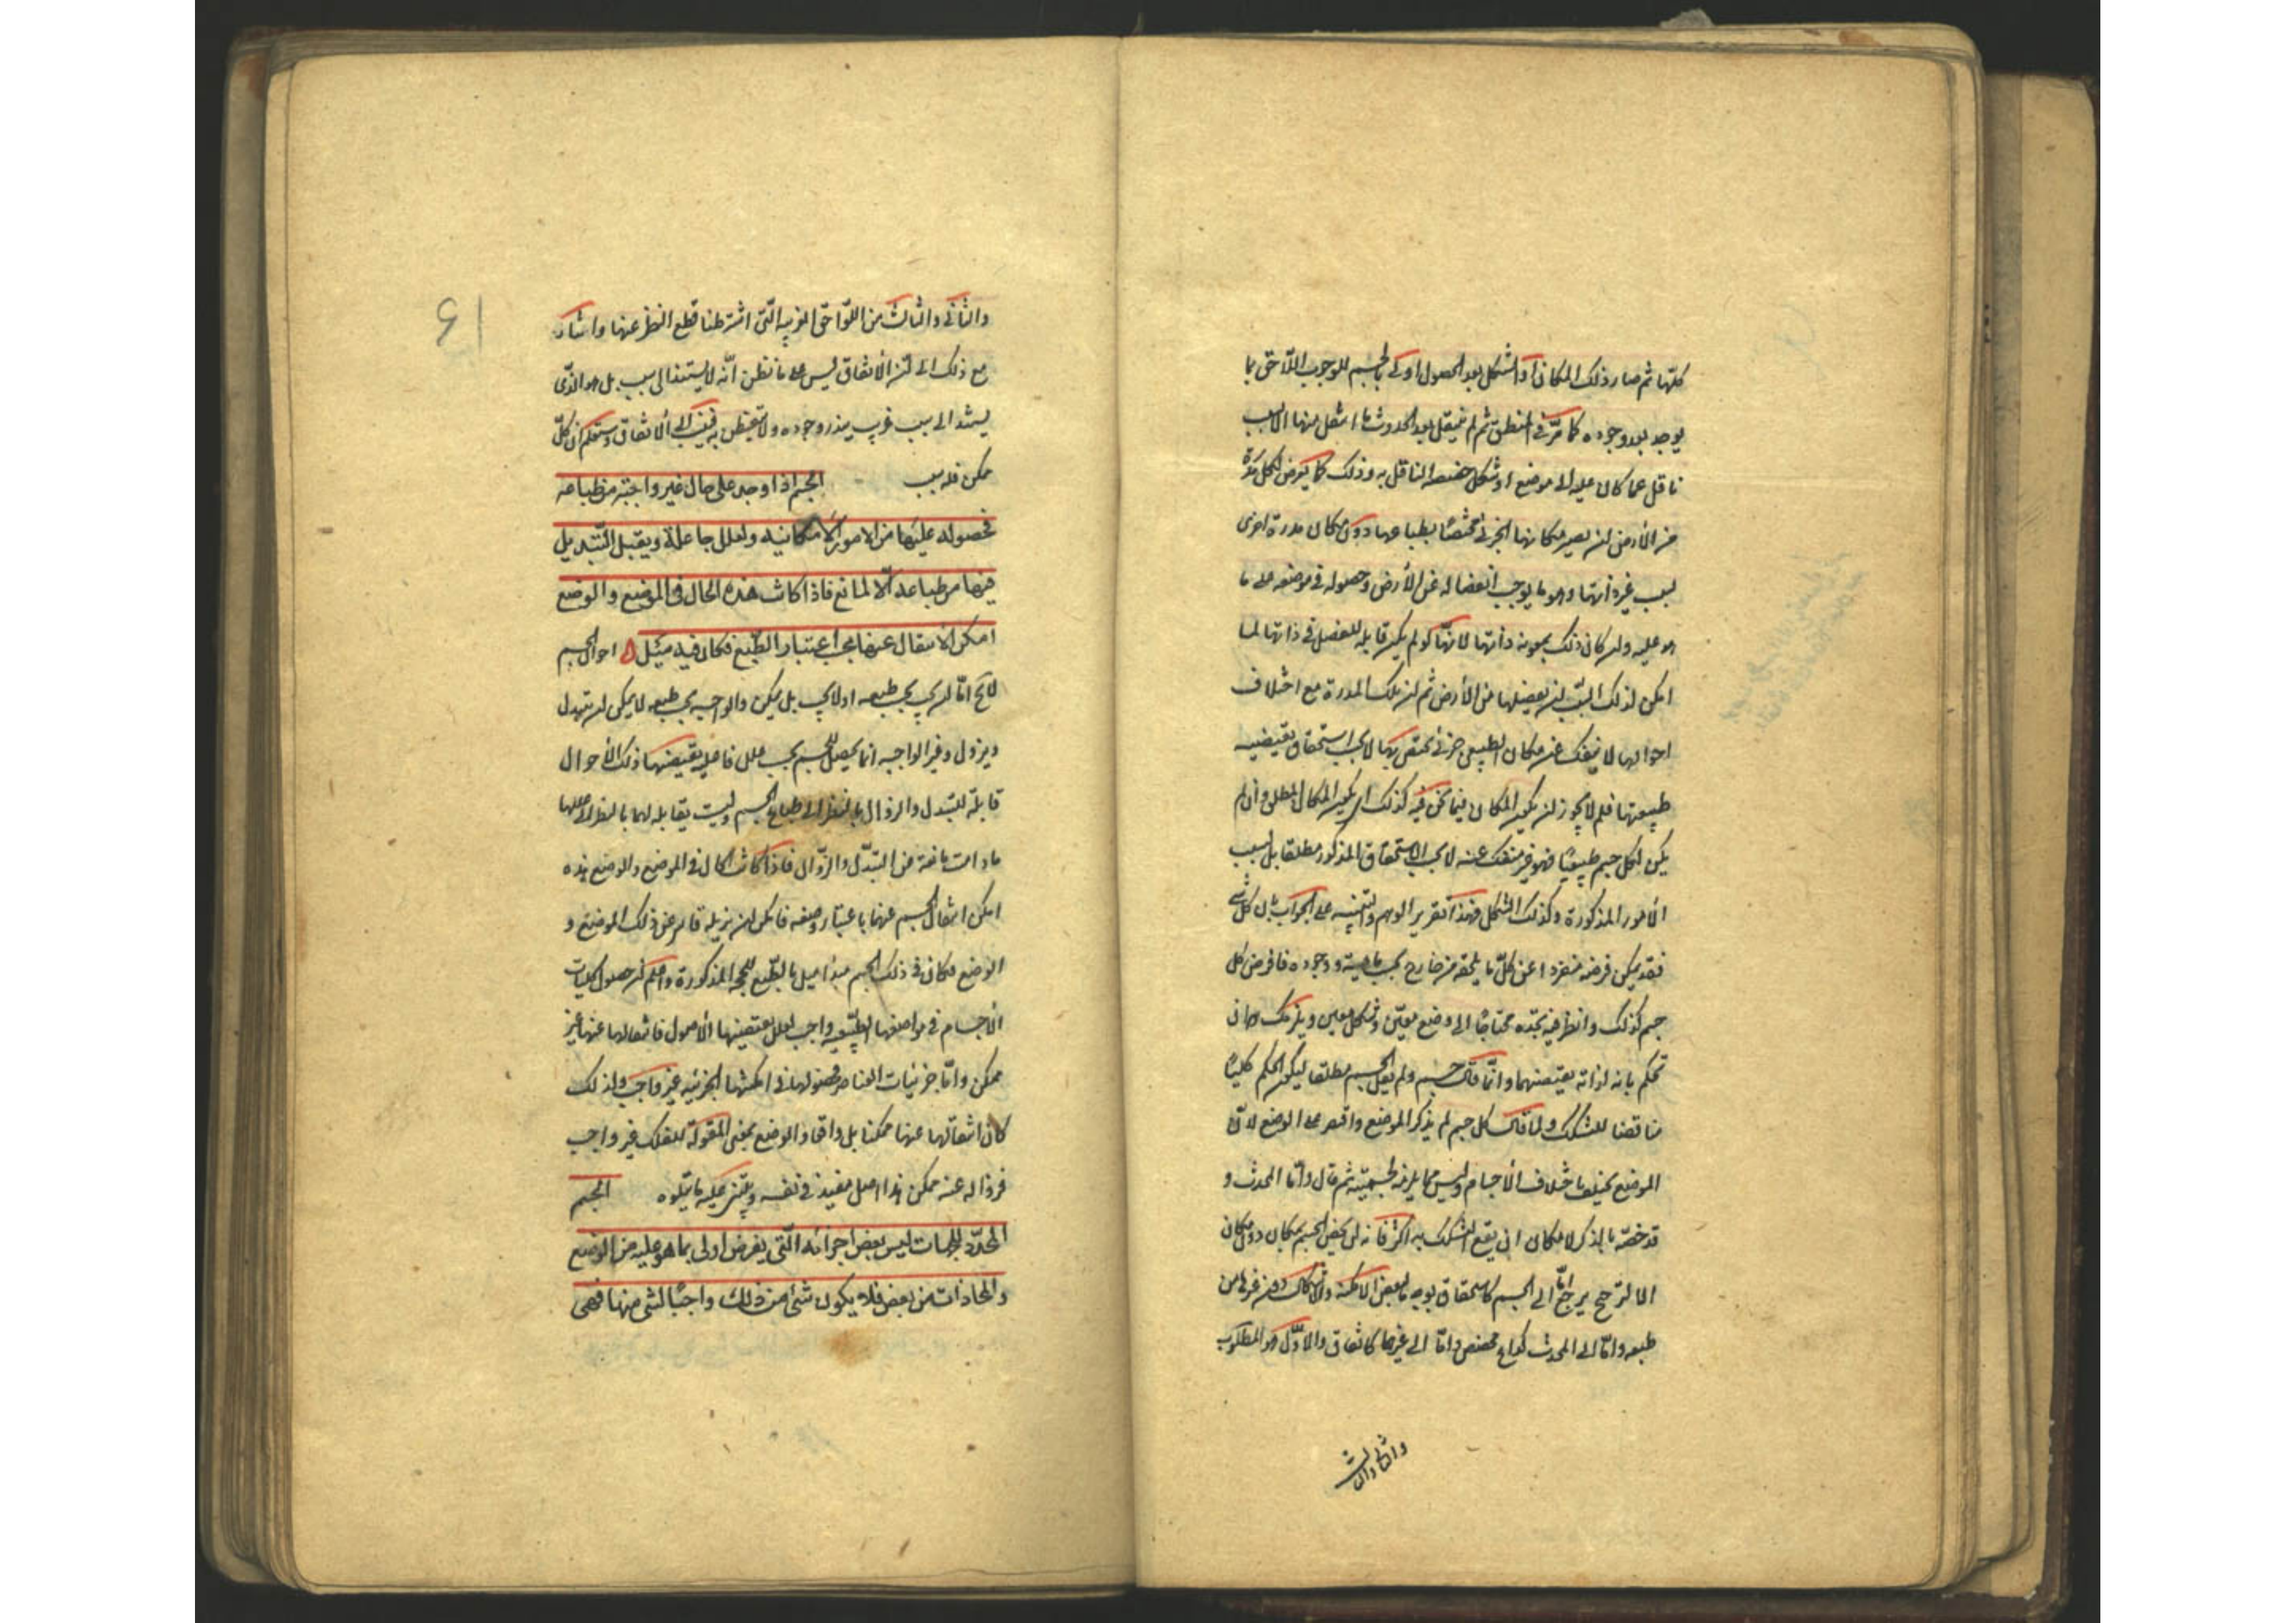 كلها ثم صار ذلك المكان او الشكل بعد الحصول اولى بالجسم للوجوب اللاحق بما
يوجد بعد وجوده كما مر فى المنطق ثم لم ينتقل بعد الحدوث ما انتقل منها الا لسبب
ناقل عما كان عليه الى موضع او شكل خصصه الناقل به وذلك كما يعرض لكل مدرة
من الأرض ان يصير مكانها الجزئى مختصا بطباعها دون مكان مدرة اخرى
بسبب غير ذاتها وهو ما يوجب انفصاله عن الأرض وحصوله فى موضعه على ما
هو عليه وان كان ذلك بمعونة ذاتها لانها لو لم يكن قابلة للفصل فى ذاتها لما
امكن لذلك السبب ان يفصلها من الأرض ثم ان تلك المدرة مع اختلاف
احوالها لا ينفك عن مكان الطبيعى جزئى يختص بها لا بحسب استحقاق يقتضيه
طبيعتها فلم لا يجوز ان يكون المكان فيما نحن فيه كذلك اى يكون المكان المطلق وان لم
يكن لكل جسم طبيعيا فهو غير منفك عنه لا بحسب الاستحقاق المذكور مطلقا بل بسبب
الأمور المذكورة وكذلك الشكل فهذا تقرير الوهم والتنبيه على الجواب بان كل شئ
فقد يمكن فرضه منفردا عن كل ما يلحقه من خارج بحسب ماهيته ووجوده فافرض كل
جسم كذلك وانظر فيه تجده محتاجا الى وضع معين وشكل معين ويلزمك ان
تحكم بانه لذاته يقتضيهما وانما قال جسم ولم يقل الجسم مطلقا ليكون الحكم كليا
مناقضا للشك ولما قال كل جسم لم يذكر الموضع واقتصر على الوضع لان
الموضع يختلف باختلاف الأجسام وليس مما يلزمه لجسميته ثم قال واما المحدث و
قد خصه بالذكر لامكان ان يقع الشك به اكثر فانه لن يخص الجسم بمكان دون مكان
الا لترجح يرجع اما الى الجسم كاستحقاق بوجه ما لبعض الامكنة والاشكال دون غيرها من
طبعه واما الى المحدث كداع مخصص واما الى غيرهما كاتفاق والاول هو المطلوب
والثانى والثالث
٤١
والثانى والثالث من اللواحق الغريبة التى اشترطنا قطع النظر عنها واشار
مع ذلك الى ان الاتفاق ليس على ما نظن انه لا يستند الى سبب بل هو الذى
يستند الى سبب غريب يندر وجوده ولا يتفطن به فينسب الى الاتفاق وستعلم ان كل
ممكن فله سبب الجسم اذا وجد على حال غير واجبة من طباعه
فحصوله عليها من الامور الامكانية ولعلل جاعلة ويقبل التبديل
فيها من طباعه الا لمانع فاذا كانت هذه الحال فى الموضع والوضع
امكن الانتقال عنها بحسب اعتبار الطبع فكان فيه ميل احوال الجسم
لا يخ اما ان يجب بحسب طبعه او لا يجب بل يمكن والواجبة بحسب طبعه لا يمكن ان يتبدل
ويزول وغير الواجبة انما يحصل للجسم بحسب علل فاعلية يقتضيها ذلك الأحوال
قابلة للتبدل والزوال بالنظر الى طباع الجسم وليست بقابلة لهما بالنظر الى عللها
مادامت مانعة من التبدل والزوال فاذا كانت الحال فى الموضع والوضع هذه
امكن انتقال الجسم عنها باعتبار وصفه فامكن ان يزيله قاسر عن ذلك الموضع و
الوضع فكان فى ذلك الجسم مبدأ ميل بالطبع للحجة المذكورة واعلم ان حصول كليات
الاجسام فى مواضعها الطبيعية واجب لعلل يقتضيها الأصول فانتقالها عنها غير
ممكن واما جزئيات العناصر فحصولها فى امكنتها الجزئية غير واجب ولذلك
كان انتقالها عنها ممكنا بل واقعا والوضع بمعنى المقولة للفلك غير واجب
فزواله عنه ممكن هذا اصل مفيد فى نفسه ويبتنى عليه ما يتلوه الجسم
المحدد للجهات ليس بعض اجزائه التى يفرض اولى بما هو عليه من الوضع
والمحاذات من بعض فلا يكون شئ من ذلك واجبا لشئ منها فهى